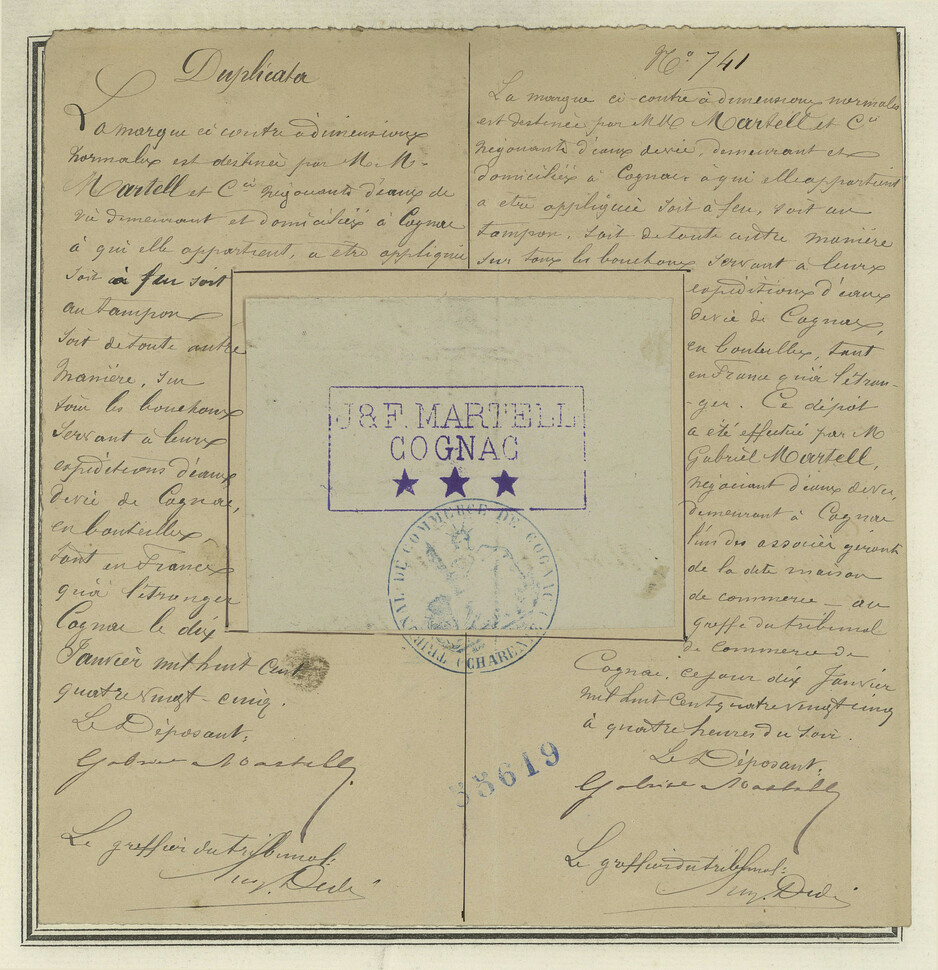 Duplicata
La marque ci contre à dimensions
normales est destinée par M. M.
Martell et Cie négociants d'eaux de
vie demeurant et domiciliés à Cognac
à qui elle appartient, a être appliquée
soit à feu soit
au tampon
soit de toute autre
manière, sur
tous les bouchons
servant à leurs
expéditions d'eaux
de vie de Cognac,
en bouteilles
tant en France
qu'à l'étranger
Cognac le dix
Janvier mil huit cent
quatre vingt-cinq.
Le Déposant,
Gabriel Martell
Le greffier du tribunal:
N° 741
La marque ci-contre à dimensions normales
est destinée par MM Martell et Cie
négociants d'eaux de vie, demeurant et
domiciliés à Cognac, a qui elle appartient
a être appliquée soit à feu, soit au
tampon, soit de toute autre manière
sur tous les bouchons servant à leurs
expéditions d'eaux
de vie de Cognac,
en bouteilles, tant
en France qu'à l'étran-
-ger. Ce dépôt
a été effectué par M
Gabriel Martell,
négociant d'eaux de vie,
demeurant à Cognac
l'un des associés gérants
de la dite maison
de commerce au
greffe du tribunal
de commerce de
Cognac, ce jour dix Janvier
mil huit cent quatre vingt cinq
à quatre heures du soir.
Le Déposant,
Gabriel Martell
Le greffier du tribunal:
J & F. MARTELL
COGNAC
TRIBUNAL DE COMMERCE DE COGNAC (CHARENTE)